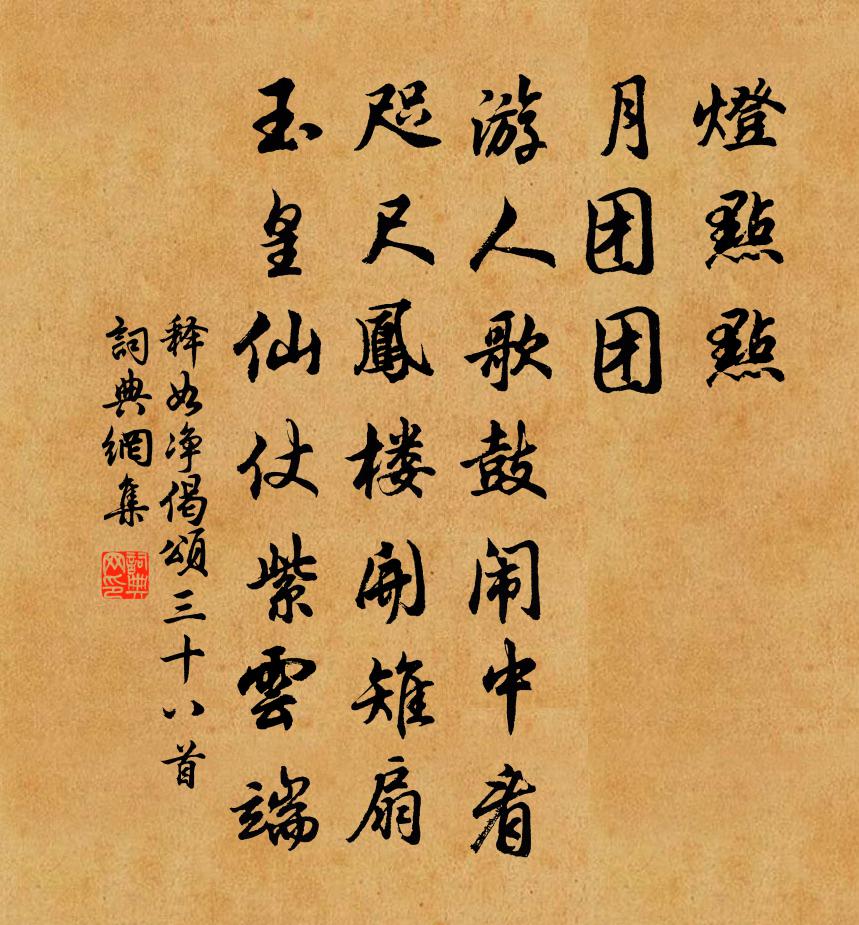 燈點點
月团团
游人歌鼓闹中看
咫尺鳳楼開雉扇
玉皇仙仗紫雲端
释如净偈頌三十八首
詞典網集
詞典网印